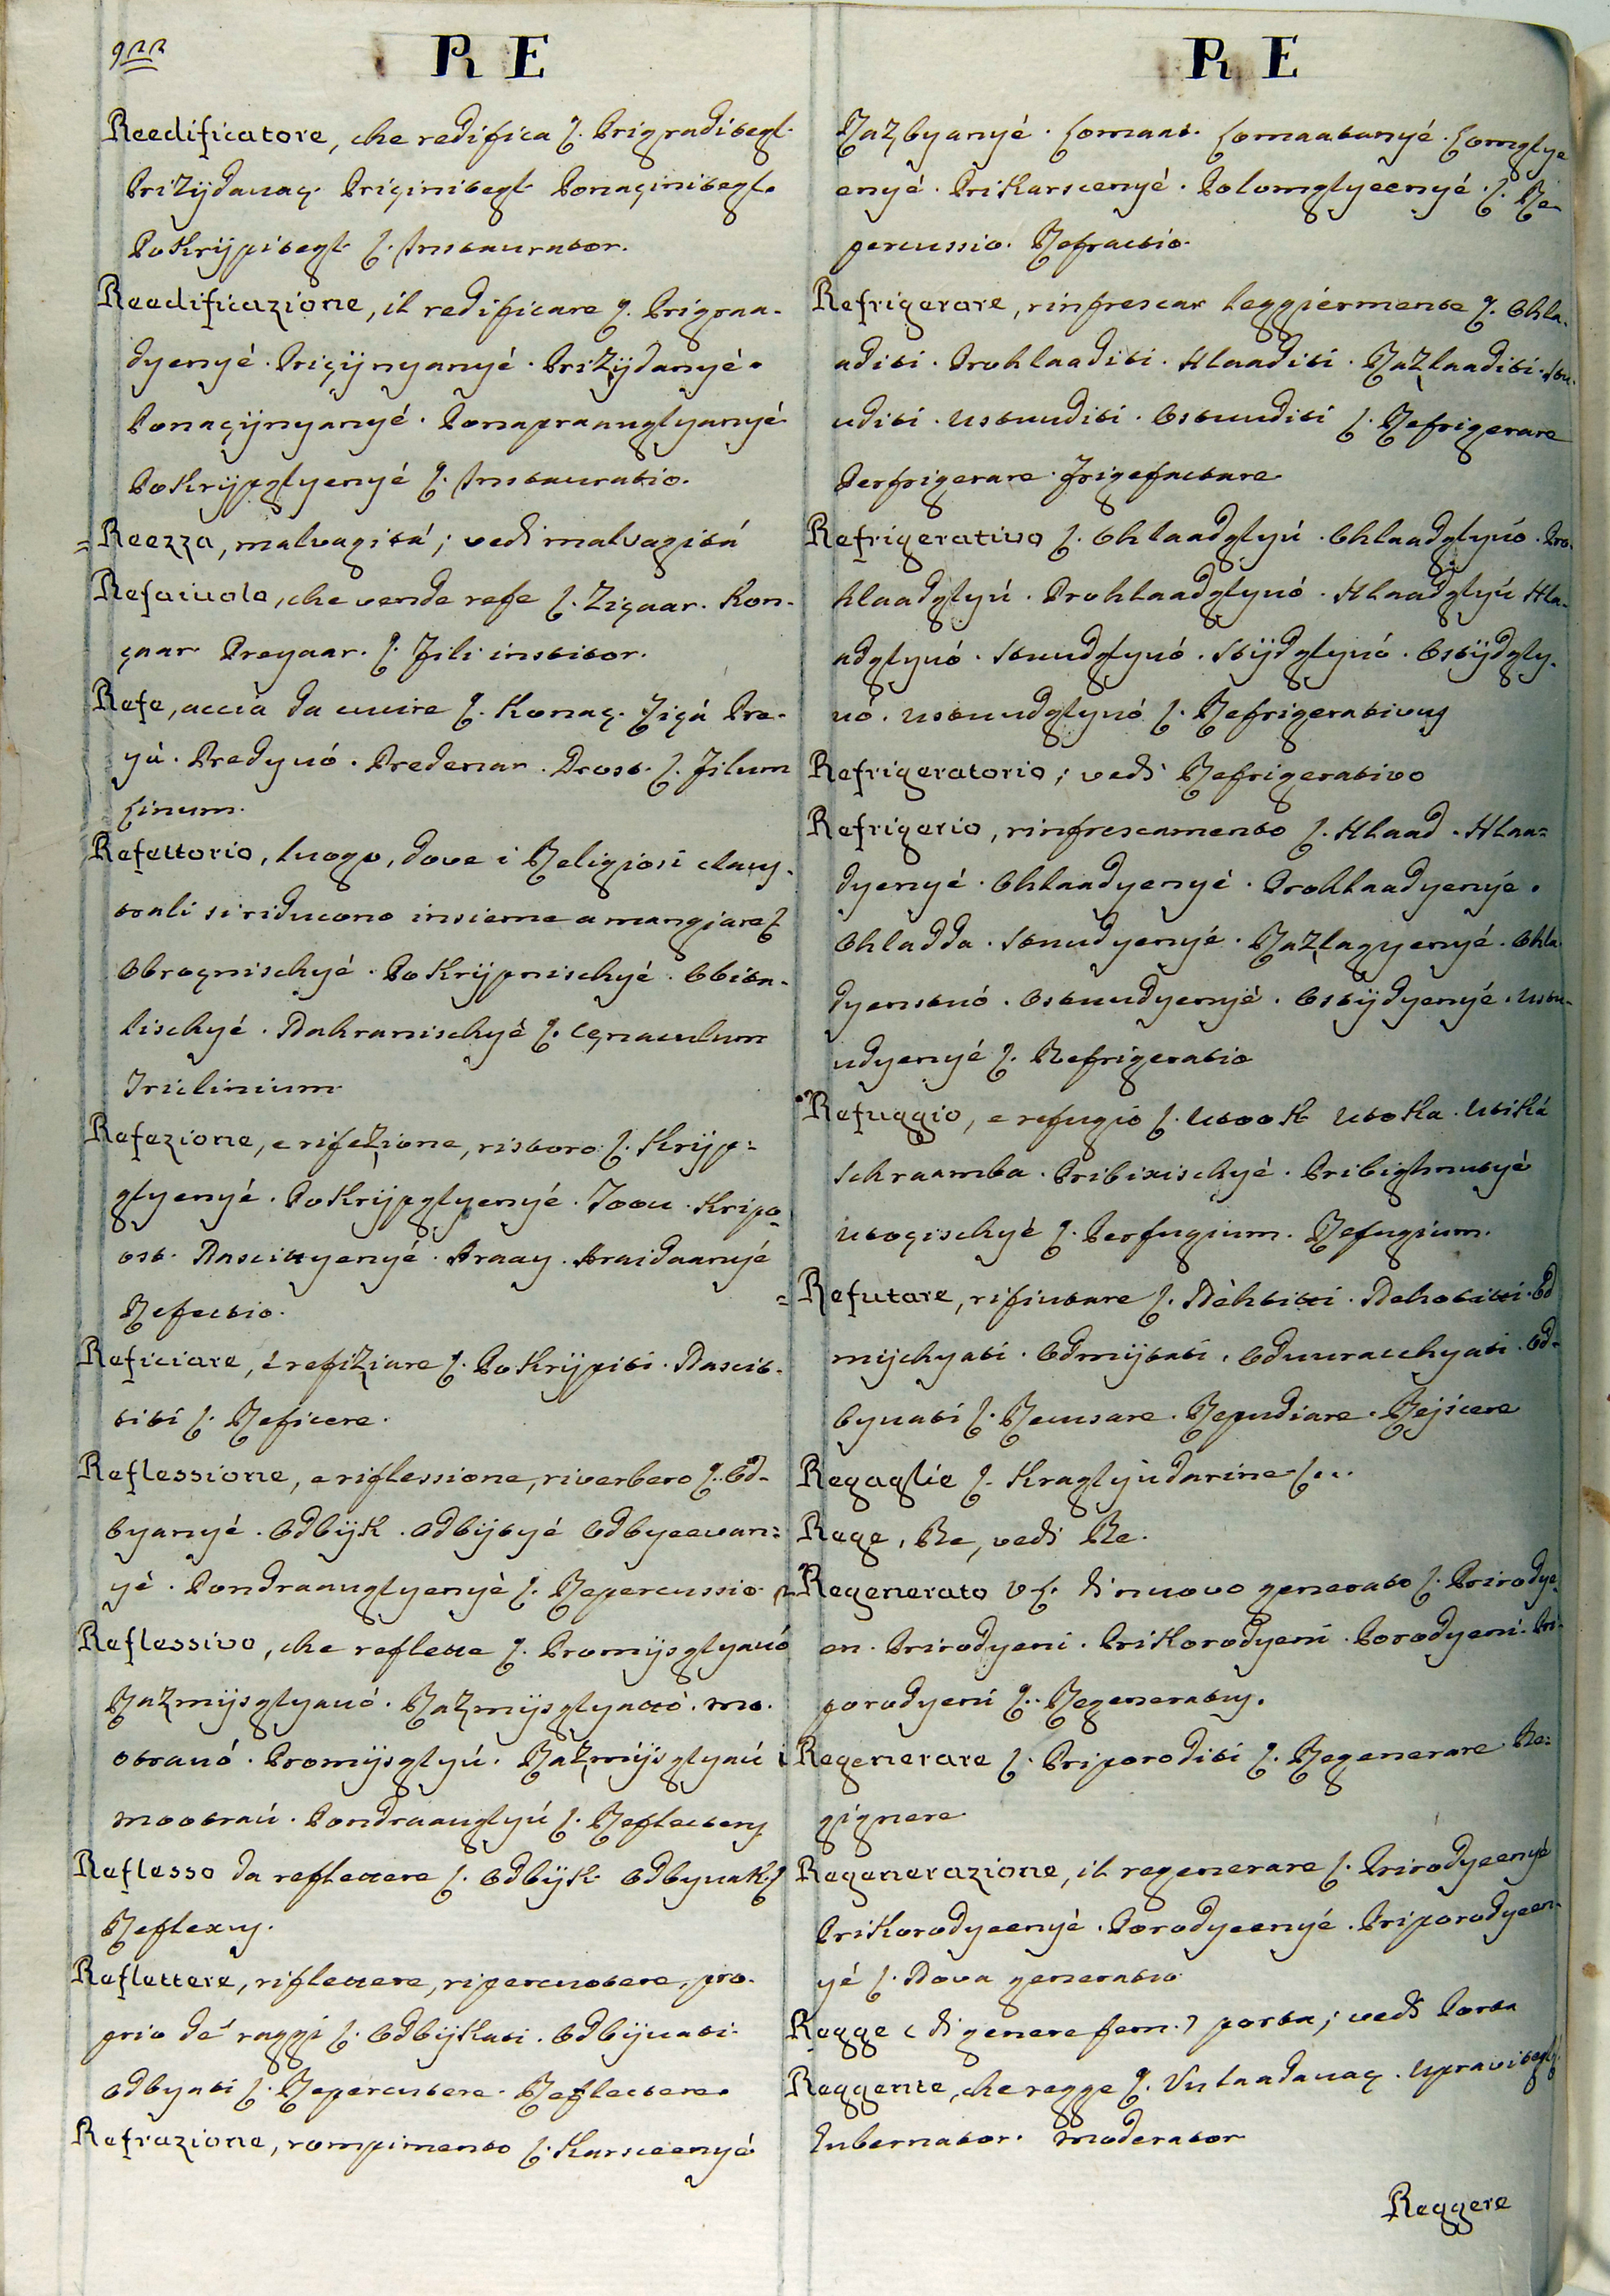 922
RE
Reedificatore, che redifica I. Prigraditegl.
Prizijdauaç. Priçinitegl. Ponaçinitegl.
Pokrijpitegl. L. Instaurator.
Reedificazione, il redificare I. Prigraa-
dyenyé. Priçijnyanyé. Prizijdanyé.
Ponaçijnyanyé. Ponapraauglyanyé
Pokrijpglyenyé L. Instauratio.
= Reezza, malvagitá; vedi malvagitá
Refaiuolo, che vende refe I. Ziçaar. Kon-
çaar Preyaar. L. Fili institor.
Refe, accia da cucire I. Konaç. Ziçá Pre-
yá. Predyuó. Predenar. Drost. L. Filum
Linum.
Refettorio, luogo, dove i Religiosi claus-
trali si riducono insieme a mangiare I.
Obroçnischyé. Pokrijpnischyé. Obita-
lischyé. Nahranischyé L. Cęnaculum
Triclinium
Refezione, e rifezione, ristoro I. Krijp-
glyenyé. Pokrijpglyenyé. Toou. Kripo-
ost. Nascittyenyé. Araay. Araidaanyé
Refectio.
Reficiare, é refiziare I. Pokrijpiti. Nascit-
titi L. Reficere.
Reflessione, e riflessione, riverbero I. Od-
byanyé. Odbijk. Odbijtyé Odbyeevan-
yé. Pondraauglyenyé L. Repercussio.
Reflessivo, che reflette I. Promijsglyauó
Razmijsglyauó. Razmijsglyattó. mo-
otrauó. Promijsglyú. Razmijsglyaú i
mootraú. Pondraauglyú L. Reflectens
Reflesso da reflettere I. Odbijk. Odbyuak. L.
Reflexus.
Reflettere, riflettere, ripercuotere, pro-
prio de' raggi I. Odbijkati. Odbijuati.
Odbyati L. Repercutere. Reflectere.
Refrazione, rompimento I. Karsceenyé
RE
Razbyanyé. Lomaat. Lomaatanyé. Lomglye
enyé. Prikarscenyé. Polomglyeenyé. L. Re-
percussio. Refractio.
Refrigerare, rinfrescar leggiermente I. Ohla-
aditi. Prohlaaditi. Hlaaditi. Razhlaaditi. Stu-
uditi. Ustuuditi. Ostuuditi L. Refrigerare
Perfrigerare. Frigefactare
Refrigerativo I. Ohlaadglyú. Ohlaadglyuó. Pro-
hlaadglyú. Prohlaadglyuó. Hlaadglyú Hla-
adglyuó. Stuudglyuó. Stijdglyuó. Ostijdgly-
uó. Ustuudglyuó L. Refrigerativus
Refrigeratorio; vedi Refrigerativo
Refrigerio, rinfrescamento I. Hlaad. Hlaa-
dyenyé. Ohlaadyenyé. Prohlaadyenyé.
Ohladda. Stuudyenyé. Razlagyenyé. Ohla-
dyenstuó. Ostuudyenyé. Ostijdyenyé. Ustu-
udyenyé L. Refrigeratio
Refuggio, e refugio I. Utook Utoka. Utiká
Schraamba. Pribixischyé. Pribighnutyé
Utoçischyé L. Perfugium. Refugium.
= Refutare, rifiutare I. Nèhtitti. Nehotitti. Od
mijchyati. Odmijtati. Oduuracchyati. Od-
byuati L. Recusare. Repudiare. Rejicere
Regaglie I. Kraglyùdarine L...
Rege, Re, vedi Re.
Regenerato V L. di nuovo generato I. Prirodye-
en. Prirodyeni. Prikorodyení. Porodyeni. Pri-
porodyení L. Regeneratus.
Regenerare I. Priporoditi L. Regenerare. Re-
gignere
Regenerazione, il regenerare I. Prirodyeenyé
Prikorodyeenyé. Porodyeenyé. Priporodyeen-
yé L. Nova generatio
Regge (di genere fem.) porta; vedi Porta
Reggente, che regge I. Vulaadauaç. Upravitegl.
Gubernator. Moderator
Reggere